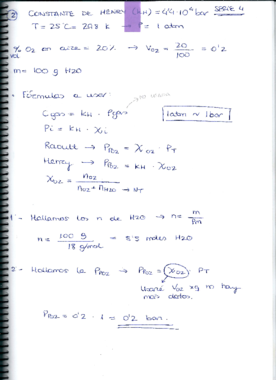 ② CONSTANTE DE HENRY (KH) = 4'4 · 10⁴ bar SERIE 4
T = 25°C = 298 K → P = 1 atm
% O2 en aire = 20% → Vo2 = 20/100 = 0'2
vol
m = 100 g H2O
• Fórmulas a usar:
Cgas = KH · Pgas
1 atm ~ 1 bar
Pi = KH · Xi
Raoult → PO2 = XO2 · PT
Henry → PO2 = KH · XO2
XO2 = nO2 / nO2 + nH2O → nT
1 - Hallamos los n de H2O → n = m/Pm
n = 100 g / 18 g/mol = 5'5 moles H2O
2 - Hallamos la PO2 → PO2 = XO2 · PT
Usaré Vo2 xq no hay
más datos.
PO2 = 0'2 · 1 = 0'2 bar.